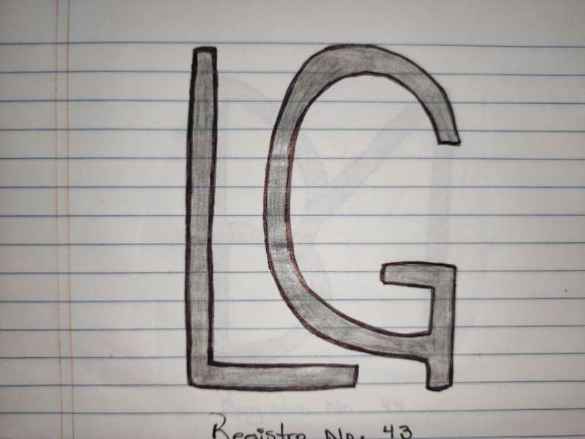 LG
Registro No. 43